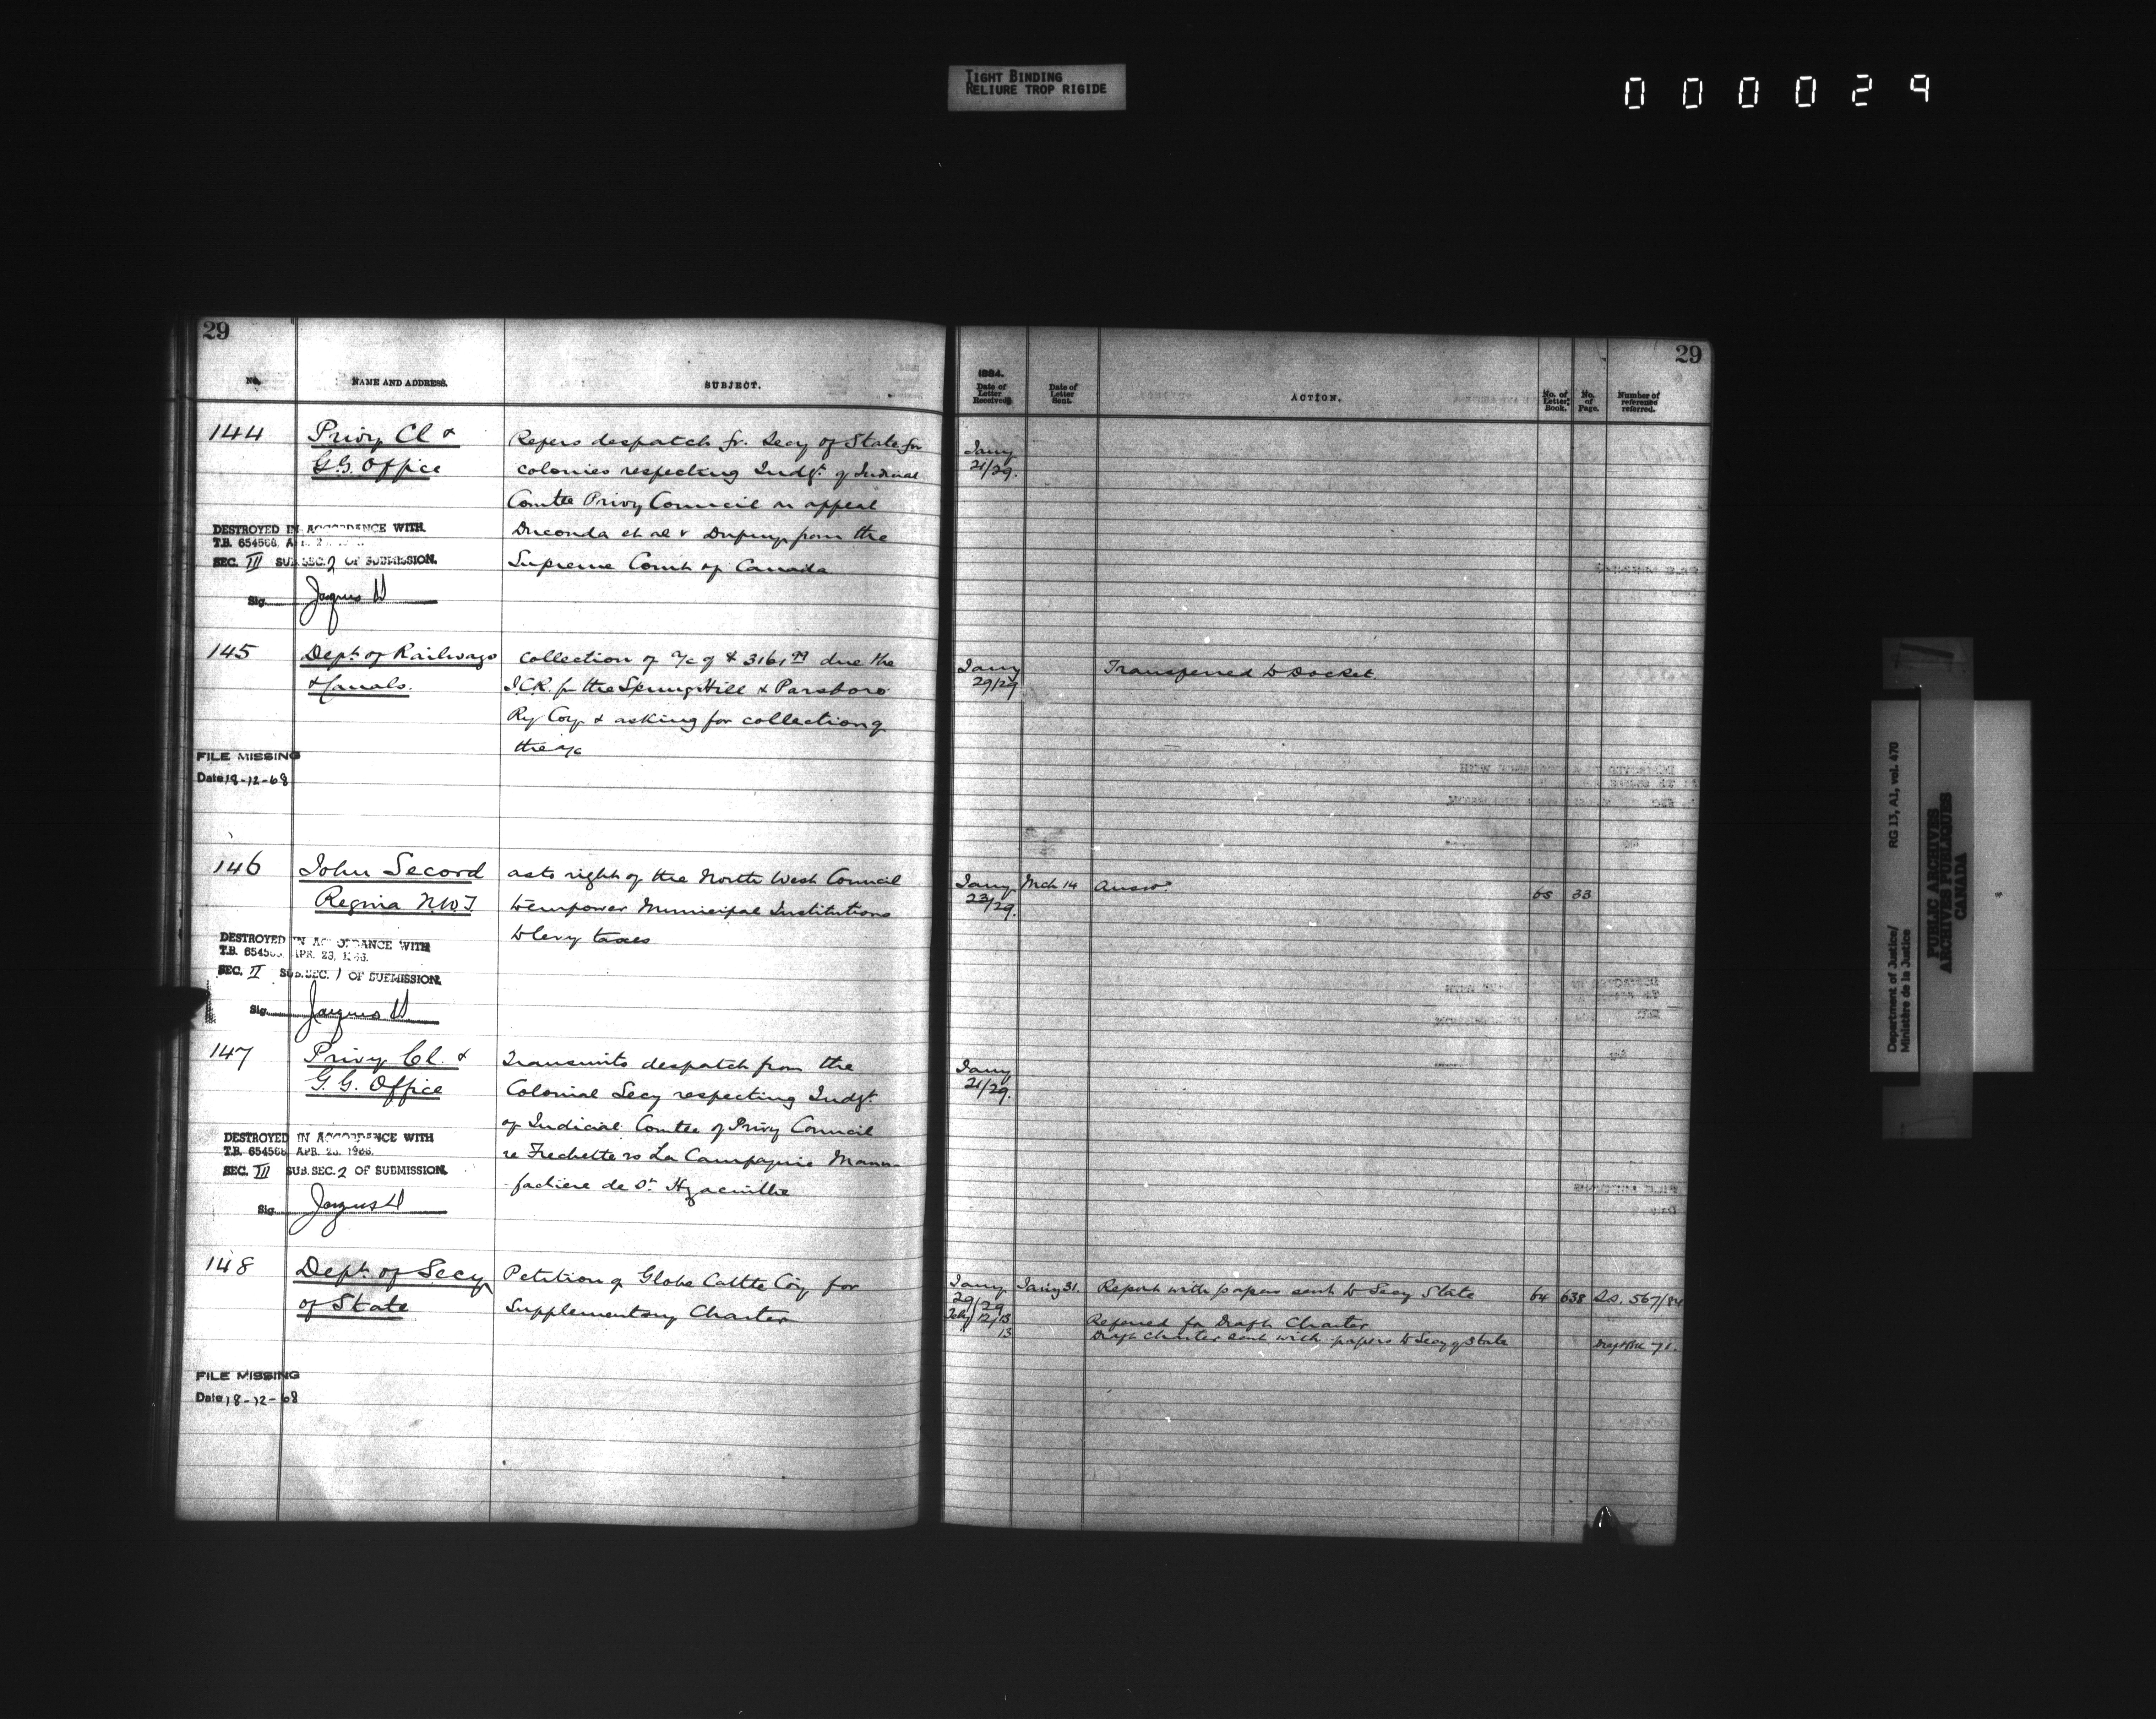 TIGHT BINDING
RELIURE TROP RIGIDE
000029
29
No.
NAME AND ADDRESS.
SUBJECT.
144
Privy Cl &
G.G. Office
Refers despatch fr. Secy of State for
colonies respecting Judgt. of Judicial
Comtee Privy Council on appeal
et al v Dupuy from the
Supreme Court of Canada
DESTROYED IN ACCORDANCE WITH
T.B. 654568
SEC. III SUB.SEC. 2 OF SUBMISSION.
Sig.
145
Dept. of Railways
& Canals.
Collection of a/c of $ 3161 due the
I.C.R. fr the Spring Hill & Parsboro
Ry Coy. & asking for collection of
the a/c
FILE MISSING
Date 18-12-68
146
John Secord
Regina N.W.T.
as to right of the North West Council
to empower Municipal Institutions
to levy taxes
DESTROYED IN ACCORDANCE WITH
T.B. 654568, APR. 23, 1966.
SEC. II SUB.SEC. 1 OF SUBMISSION.
Sig.
147
Privy Cl. &
G.G. Office
Transmits despatch from the
Colonial Secy respecting Judgt.
of Judicial Comtee of Privy Council
re Frechette vs La Compagnie Manu-
facture de St. Hyacinthe
DESTROYED IN ACCORDANCE WITH
T.B. 654568 APR. 23, 1966.
SEC. III SUB.SEC. 2 OF SUBMISSION.
Sig.
148
Dept. of Secy
of State
Petition of Globe Cattle Coy for
Supplementary Charter
FILE MISSING
Date 18-12-68
29
1884.
Date of Letter Received.
Date of Letter Sent.
ACTION.
No. of Letter Book.
No. of Page.
Number of reference referred.
Jany
21/29.
Jany
29/29
Transferred to Docket
Jany
23/29.
Mch 14
Answd.
65
33
Jany
21/29.
Jany
29/29
Jany 31.
Report with papers sent to Secy State
64
638
S.S. 567/84
Feby 12/13
Referred for Draft Charter
13
Draft Charter sent with papers to Secy of State
71.
Department of Justice/
Ministère de la Justice
RG 13, A1, vol. 470
PUBLIC ARCHIVES
ARCHIVES PUBLIQUES
CANADA